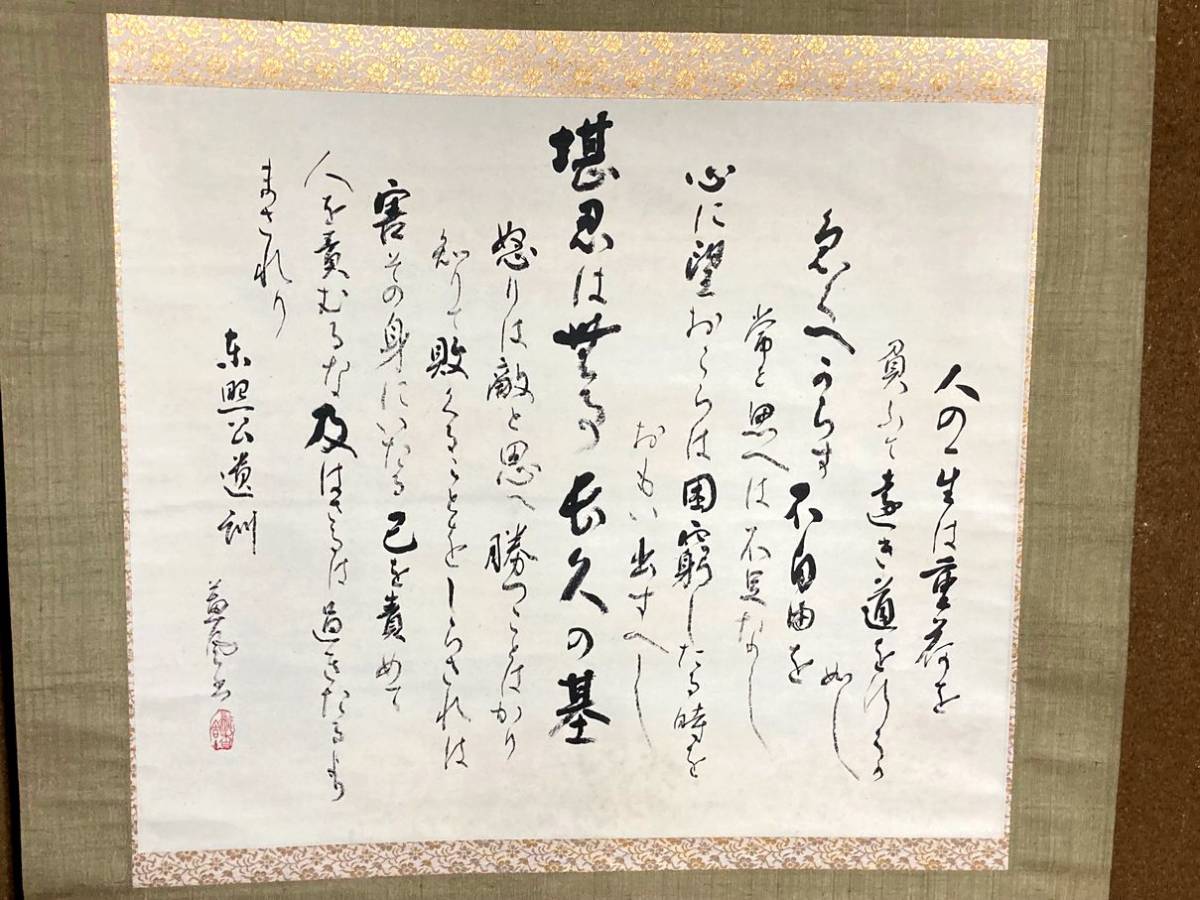 人の一生は重荷を
負ふて遠き道をゆくか
如し
急くへからす不自由を
常と思へは不足なし
心に望おこらは困窮したる時を
おもい出すへし
堪忍は無事長久の基
怒りは敵と思へ勝つことはかり
知りて敗くることをしらされは
害その身にいたる己を責めて
人を責むるな及はさるは過きたるより
まされり
東照公遺訓
書